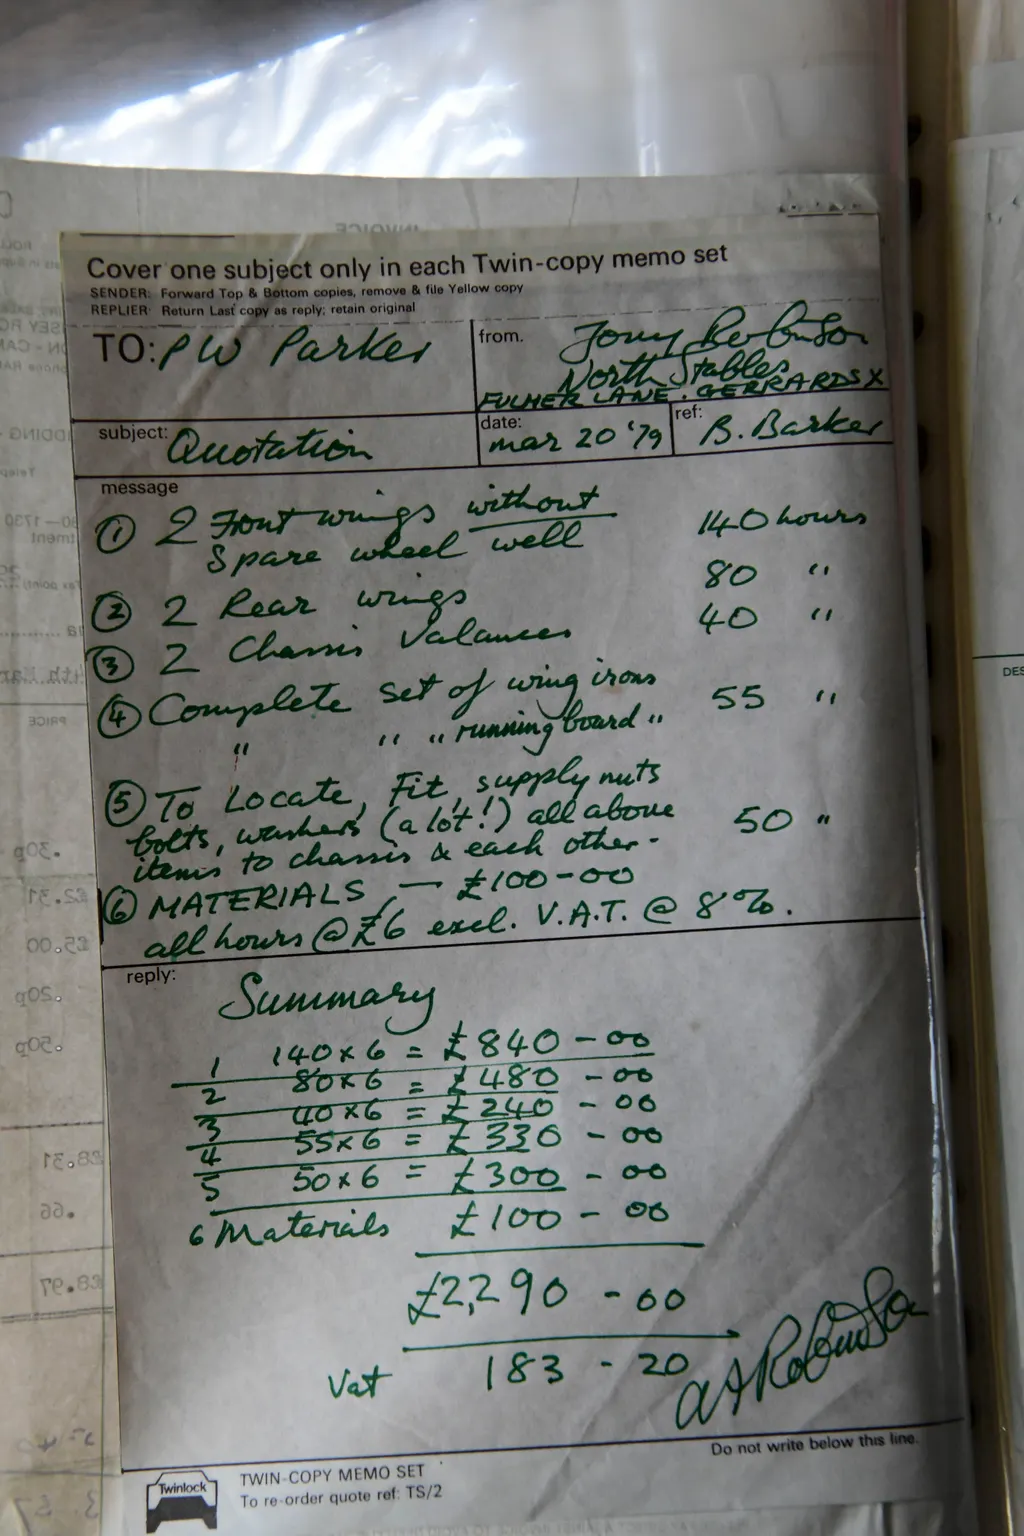 Cover one subject only in each Twin-copy memo set
SENDER: Forward Top & Bottom copies, remove & file Yellow copy
REPLIER: Return Last copy as reply; retain original
TO: PW Parker
from. Tony Robinson
North Stables
FULMER LANE. GERRARDS X
subject: Quotation
date: mar 20 '79
ref: B. Barker
message
① 2 Front wings without 140 hours
Spare wheel well
② 2 Rear wings 80 "
③ 2 Chassis Valances 40 "
④ Complete set of wing irons 55 "
" " " running board "
⑤ To Locate, Fit, supply nuts
bolts, washers (a lot!) all above 50 "
items to chassis & each other.
⑥ MATERIALS — £100-00
all hours @ £6 excl. V.A.T. @ 8%.
reply:
Summary
1 140 x 6 = £840 - 00
2 80 x 6 = £480 - 00
3 40 x 6 = £240 - 00
4 55 x 6 = £330 - 00
5 50 x 6 = £300 - 00
6 Materials £100 - 00
£2,290 - 00
Vat 183 - 20
A Robinson
Do not write below this line.
Twinlock
TWIN-COPY MEMO SET
To re-order quote ref: TS/2
INVOICE
PRICE
.30p
£2.31
£5.00
.20p
.50p
£8.31
.66
£8.97
DES